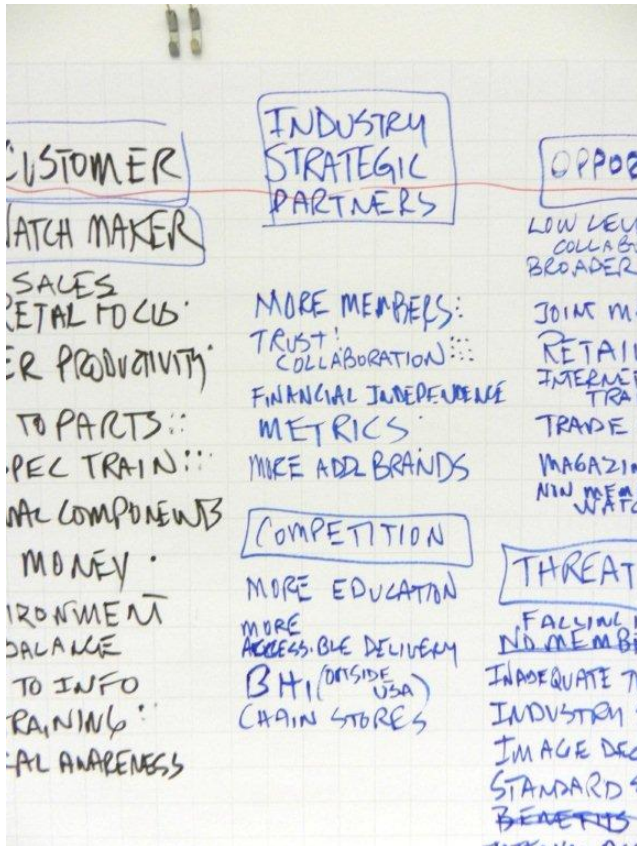 CUSTOMER
WATCH MAKER
SALES
RETAL FOCUS
ER PRODUCTIVITY
TO PARTS
PEC TRAIN
NAL COMPONENTS
MONEY
IRONMENT
BALANCE
TO INFO
TRAINING
AL AWARENESS
INDUSTRY
STRATEGIC
PARTNERS
MORE MEMBERS
TRUST
COLLABORATION
FINANCIAL INDEPENDENCE
METRICS
MORE ADDL BRANDS
COMPETITION
MORE EDUCATION
MORE
ACCESSIBLE DELIVERY
BHI (OUTSIDE USA)
CHAIN STORES
OPPOR
LOW LEV
COLLAB
BROADER
JOINT M
RETAIL
INTERNE
TRA
TRADE
MAGAZIN
NON MEM
WATC
THREAT
FALLING
NO MEMBE
INADEQUATE T
INDUSTRY
IMAGE DEC
STANDARD S
BENEFITS